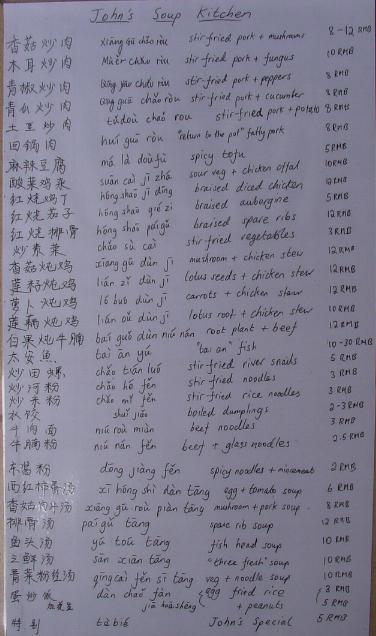 John's Soup Kitchen
香菇炒肉 xiāng gū chǎo ròu stir-fried pork + mushrooms 8-12 RMB
木耳炒肉 Mù ěr chǎo ròu stir fried pork + fungus 10 RMB
青椒炒肉 Qīng jiāo chǎo ròu stir-fried pork + peppers 8 RMB
青瓜炒肉 Qīng guā chǎo ròu stir-fried pork + cucumber 8 RMB
土豆炒肉 tǔ dòu chǎo rou stir-fried pork + potato 8 RMB
回锅肉 huí guō ròu "return to the pot" fatty pork 8 RMB
麻辣豆腐 má là dòufǔ spicy tofu 5 RMB
酸菜鸡杂 suān cài jī zhá sour veg + chicken offal 10 RMB
红烧鸡丁 hóng shāo jī dīng braised diced chicken 12 RMB
红烧茄子 hóng shāo qié zi braised aubergine 5 RMB
红烧排骨 hóng shāo pái gǔ braised spare ribs 12 RMB
炒素菜 chǎo sù cài stir-fried vegetables 3 RMB
香菇炖鸡 xiang gū dùn jī mushroom + chicken stew 12 RMB
莲籽炖鸡 lián zǐ dùn jī lotus seeds + chicken stew 12 RMB
萝卜炖鸡 ló bub dùn jī carrots + chicken stew 12 RMB
莲藕炖鸡 lián oǔ dùn jī lotus root + chicken stew 10 RMB
白果炖牛腩 baí guǒ dùn niú nán root plant + beef 12 RMB
太安鱼 tài ān yú "tai an" fish 10-30 RMB
炒田螺 chǎo tián luó stir-fried river snails 5 RMB
炒河粉 chǎo hé fěn stir-fried noodles 3 RMB
炒米粉 chǎo mǐ fěn stir-fried rice noodles 3 RMB
水饺 shuǐ jiǎo boiled dumplings 2-3 RMB
牛肉面 niú roù miàn beef noodles 3 RMB
牛腩粉 niú nán fěn beef + glass noodles 2.5 RMB
东 粉 dōng jiàng fěn spicy noodles + mincemeat 2 RMB
西红柿蛋汤 xī hōng shì dàn tāng egg + tomato soup 6 RMB
香菇肉片汤 xiāng gū roù piàn tāng mushroom + pork soup 8 RMB
排骨汤 paí gǔ tāng spare rib soup 12 RMB
鱼头汤 yú toú tāng fish head soup 10 RMB
三鲜汤 sān xiān tāng "three fresh" soup 10 RMB
青菜粉丝汤 qīng cài fěn sī tāng veg + noodle soup 10 RMB
蛋炒饭 dàn chǎo fàn egg fried rice 3 RMB
加花生 jiā huā shēng + peanuts 5 RMB
特别 tè bié John's Special 5 RMB